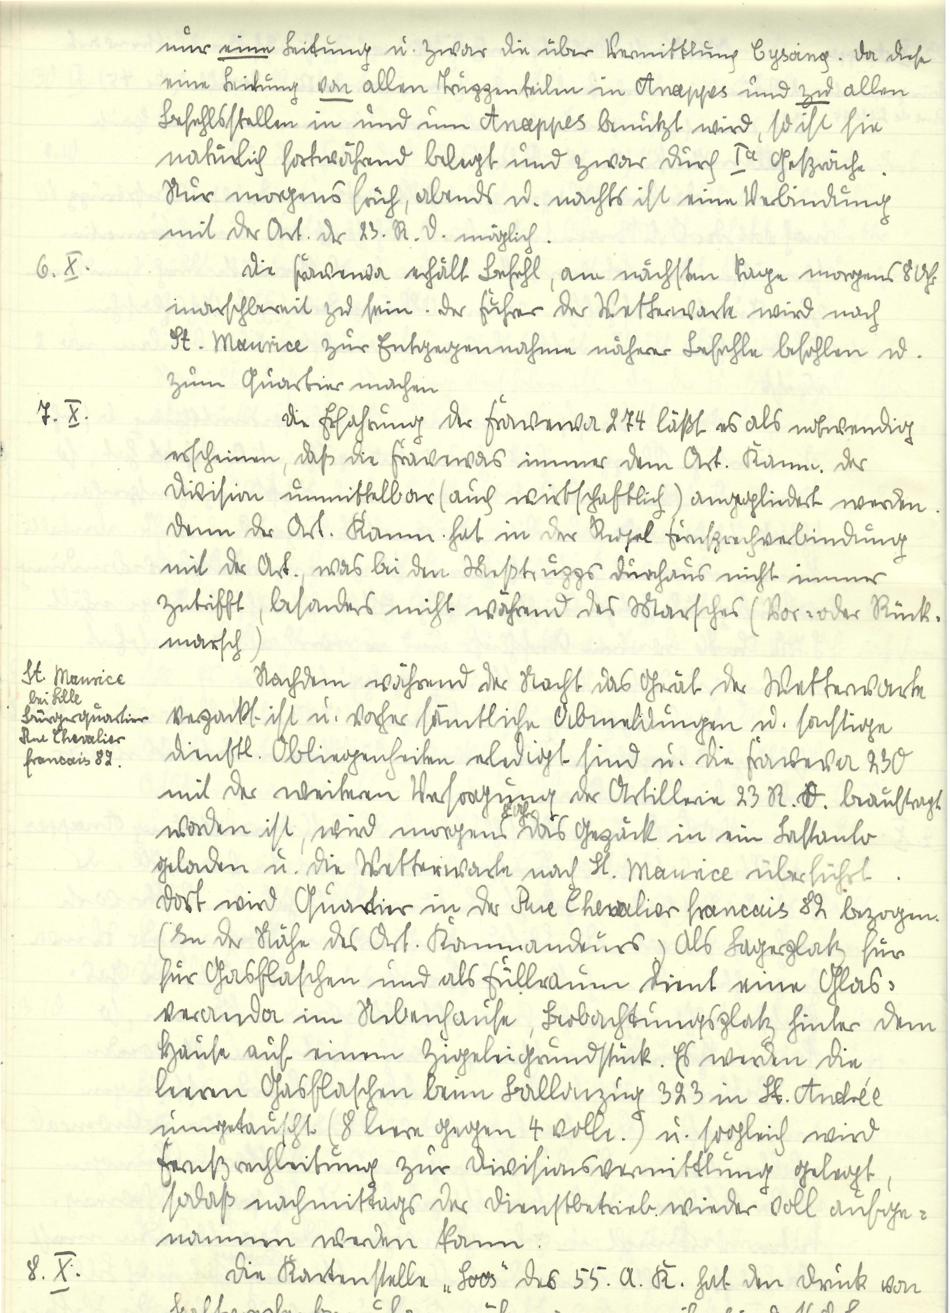 nur eine Leitung u. zwar die über Vermittlung Cysoing. Da diese
eine Leitung von allen Truppenteilen in Anappes und zu allen
Befehlsstellen in und um Anappes benützt wird, so ist sie
natürlich fortwährend belegt und zwar durch Ia Gespräche.
Nur morgens früh, abends u. nachts ist eine Verbindung
mit der Art. der 23. R. D. möglich.
6. X. Die Frawewa erhält Befehl, am nächsten Tage morgens 8 Uhr
marschbereit zu sein. Der Führer der Wetterwarte wird nach
St. Maurice zur Entgegennahme näherer Befehle befohlen u.
zum Quartier machen
7. X. Die Erfahrung der Frawewa 274 läßt es als notwendig
erscheinen, daß die Frawewas immer dem Art. Kom. der
Division unmittelbar (auch wirtschaftlich) angegliedert werden.
Denn der Art. Kom. hat in der Regel Fernsprechverbindung
mit der Art., was bei den Meßtrupps durchaus nicht immer
zutrifft, besonders nicht während des Marsches (Vor= oder Rück-
marsch)
St. Maurice
bei Lille
Bürgerquartier
Rue Chevalier
francais 82.
Nachdem während der Nacht das Gerät der Wetterwarte
verpackt ist u. vorher sämtliche Abmeldungen u. sonstige
dienstl. Obliegenheiten erledigt sind u. die Frawewa 230
mit der weiteren Versorgung der Artillerie 23 R. D. beauftragt
worden ist, wird morgens das Gepäck in ein Lastauto
geladen u. die Wetterwarte nach St. Maurice überführt.
Dort wird Quartier in der Rue Chevalier francais 82 bezogen.
(In der Nähe des Art. Kommandeurs) Als Lagerplatz für
für Gasflaschen und als Füllraum dient eine Glas=
veranda im Nebenhause, Beobachtungsplatz hinter dem
Hause auf einem Ziegeleigrundstück. Es werden die
leeren Gasflaschen beim Ballonzug 323 in St. Andrée
umgetauscht (8 leere gegen 4 volle.) u. sogleich wird
Fernsprechleitung zur Divisionsvermittlung gelegt,
sodaß nachmittags der Dienstbetrieb wieder voll aufge=
nommen werden kann.
8. X. Die Kartenstelle „Loos" des 55. A. K. hat den Druck von